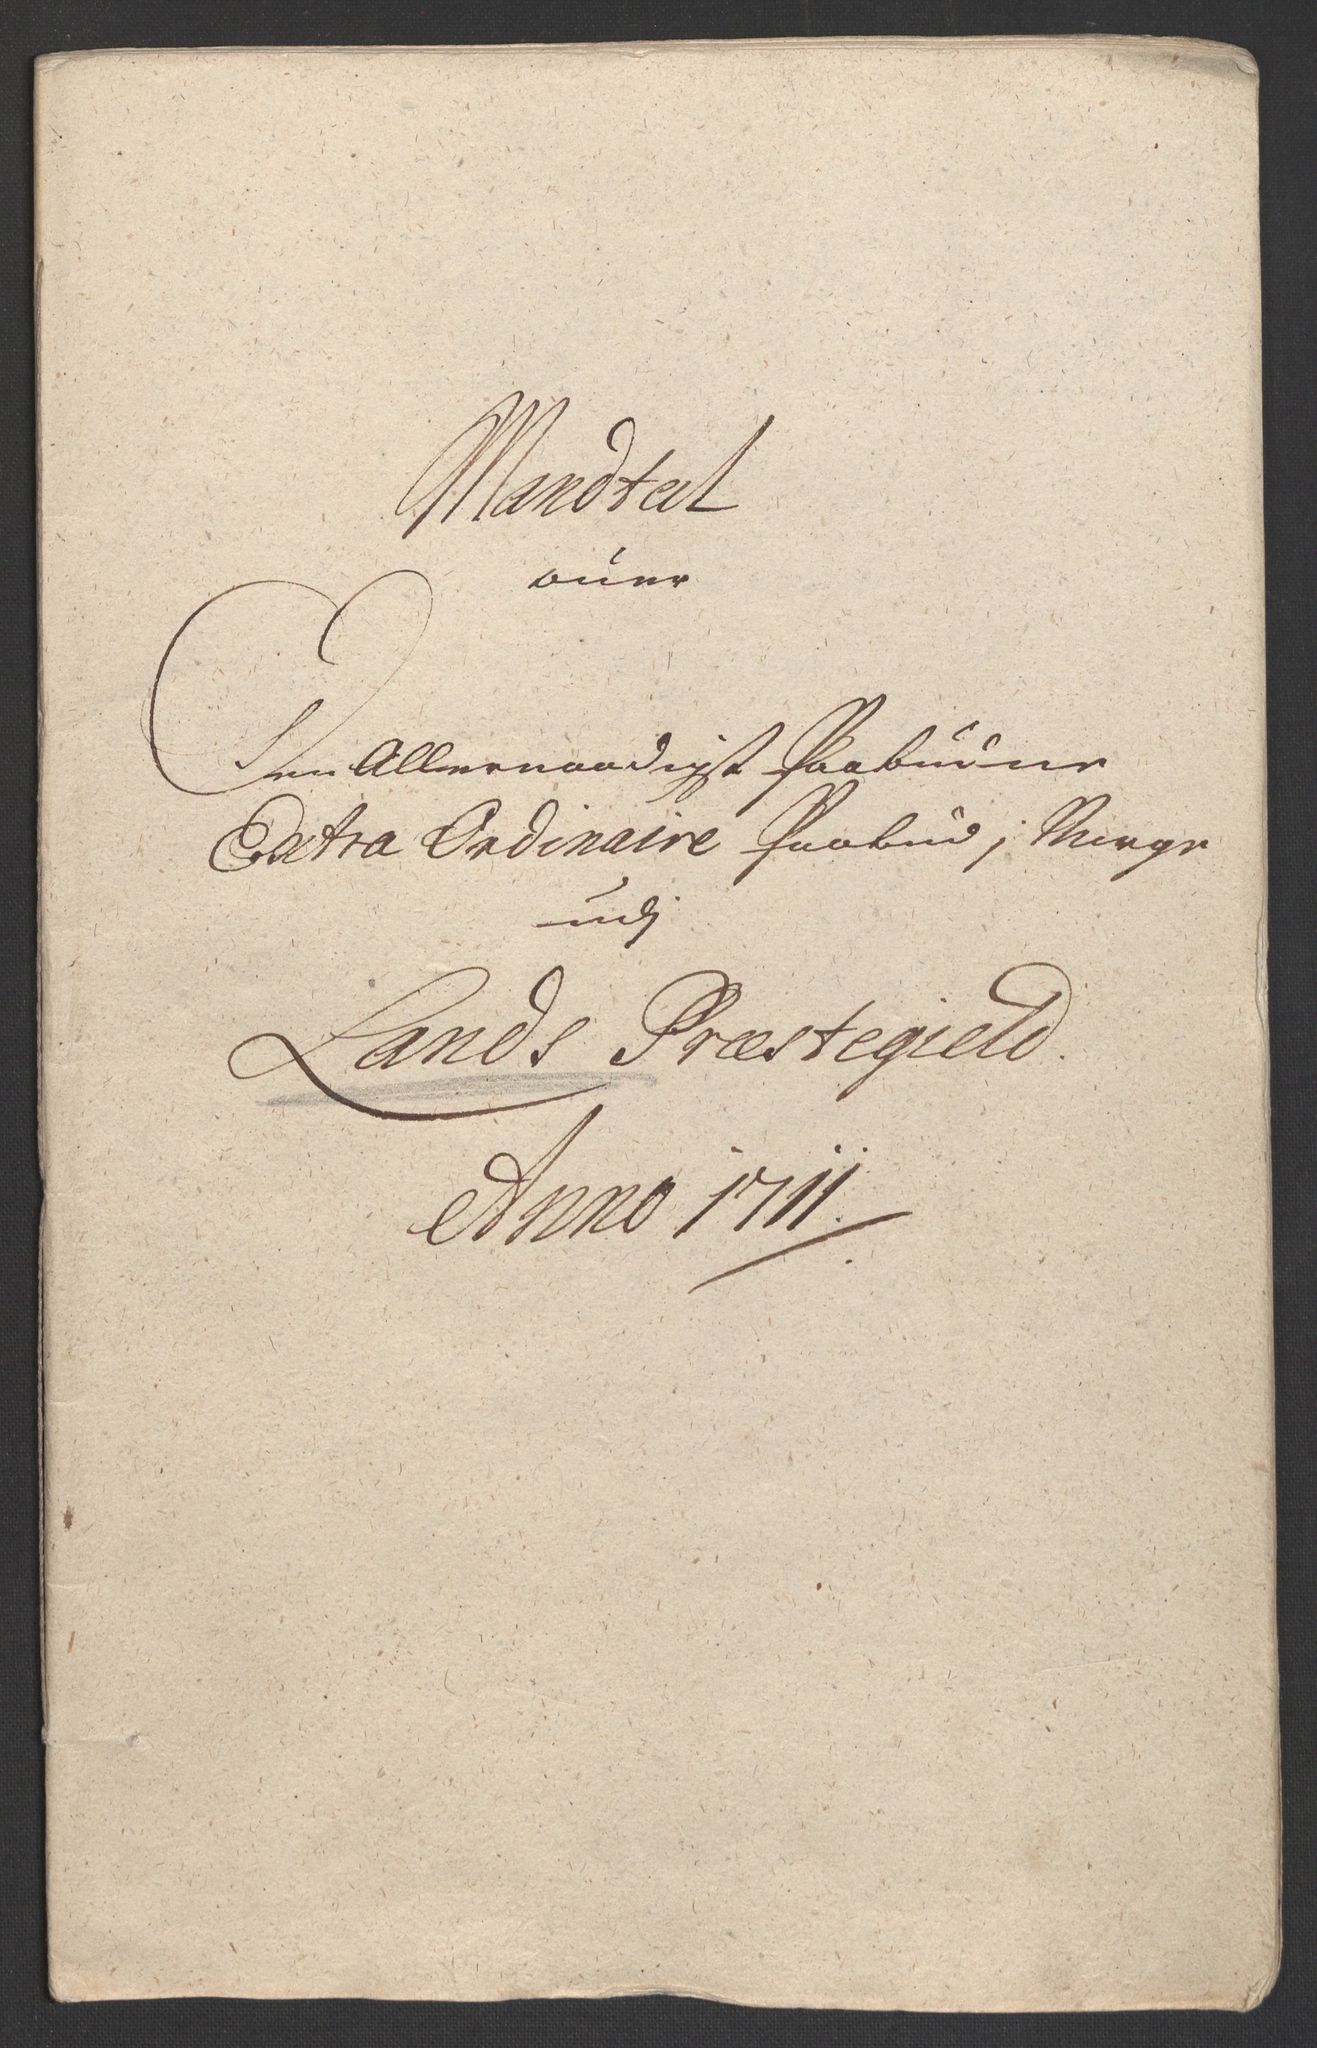 Mandtal
ouer
Den Allernaadigst Paabudne
Extra Ordinaire Paabud j Norge
udj
Lands Præstegield.
Anno 1711.